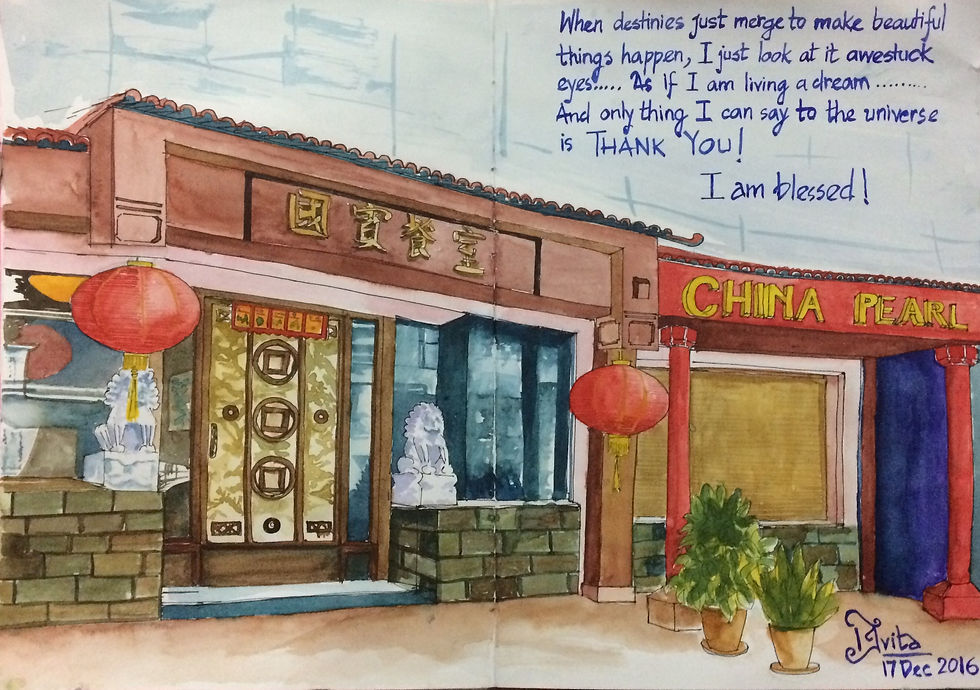 When destinies just merge to make beautiful
things happen, I just look at it awestuck
eyes..... As if I am living a dream .........
And only thing I can say to the universe
is THANK YOU!
I am blessed!
國寶餐室
CHINA PEARL
Avita
17 Dec 2016